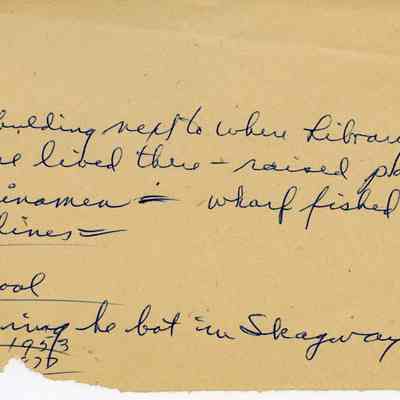 building next to where Librar
e lived there - raised p
inamen = wharf fished
lines =
ool
ring he bot in Skagway
1953